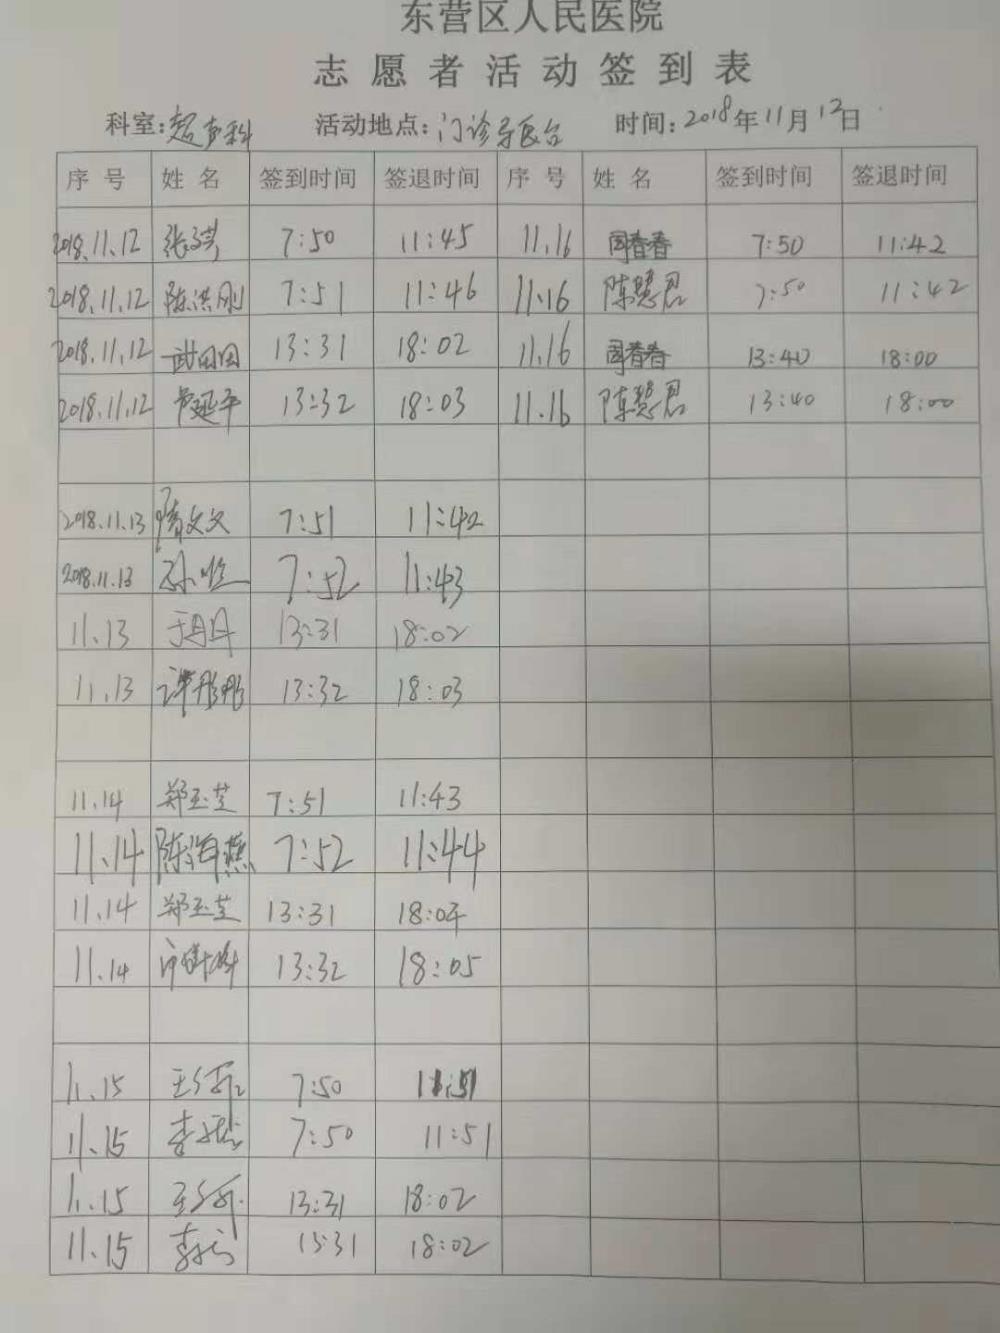 东营区人民医院
志愿者活动签到表
科室:超声科 活动地点:门诊导医台 时间:2018年11月12日
序号 姓名 签到时间 签退时间 序号 姓名 签到时间 签退时间
2018.11.12 7:50 11:45 11.16 周春春 7:50 11:42
2018.11.12 陈洪刚 7:51 11:46 11.16 陈慧君 7:50 11:42
2018.11.12 武田田 13:31 18:02 11.16 周春春 13:40 18:00
2018.11.12 延平 13:32 18:03 11.16 陈慧君 13:40 18:00
2018.11.13 隋文文 7:51 11:42
2018.11.13 孙 7:52 11:43
11.13 于丹丹 13:31 18:02
11.13 13:32 18:03
11.14 郑玉芝 7:51 11:43
11.14 陈海燕 7:52 11:44
11.14 郑玉芝 13:31 18:04
11.14 13:32 18:05
11.15 王 7:50 11:51
11.15 李 7:50 11:51
11.15 王 13:31 18:02
11.15 李 13:31 18:02